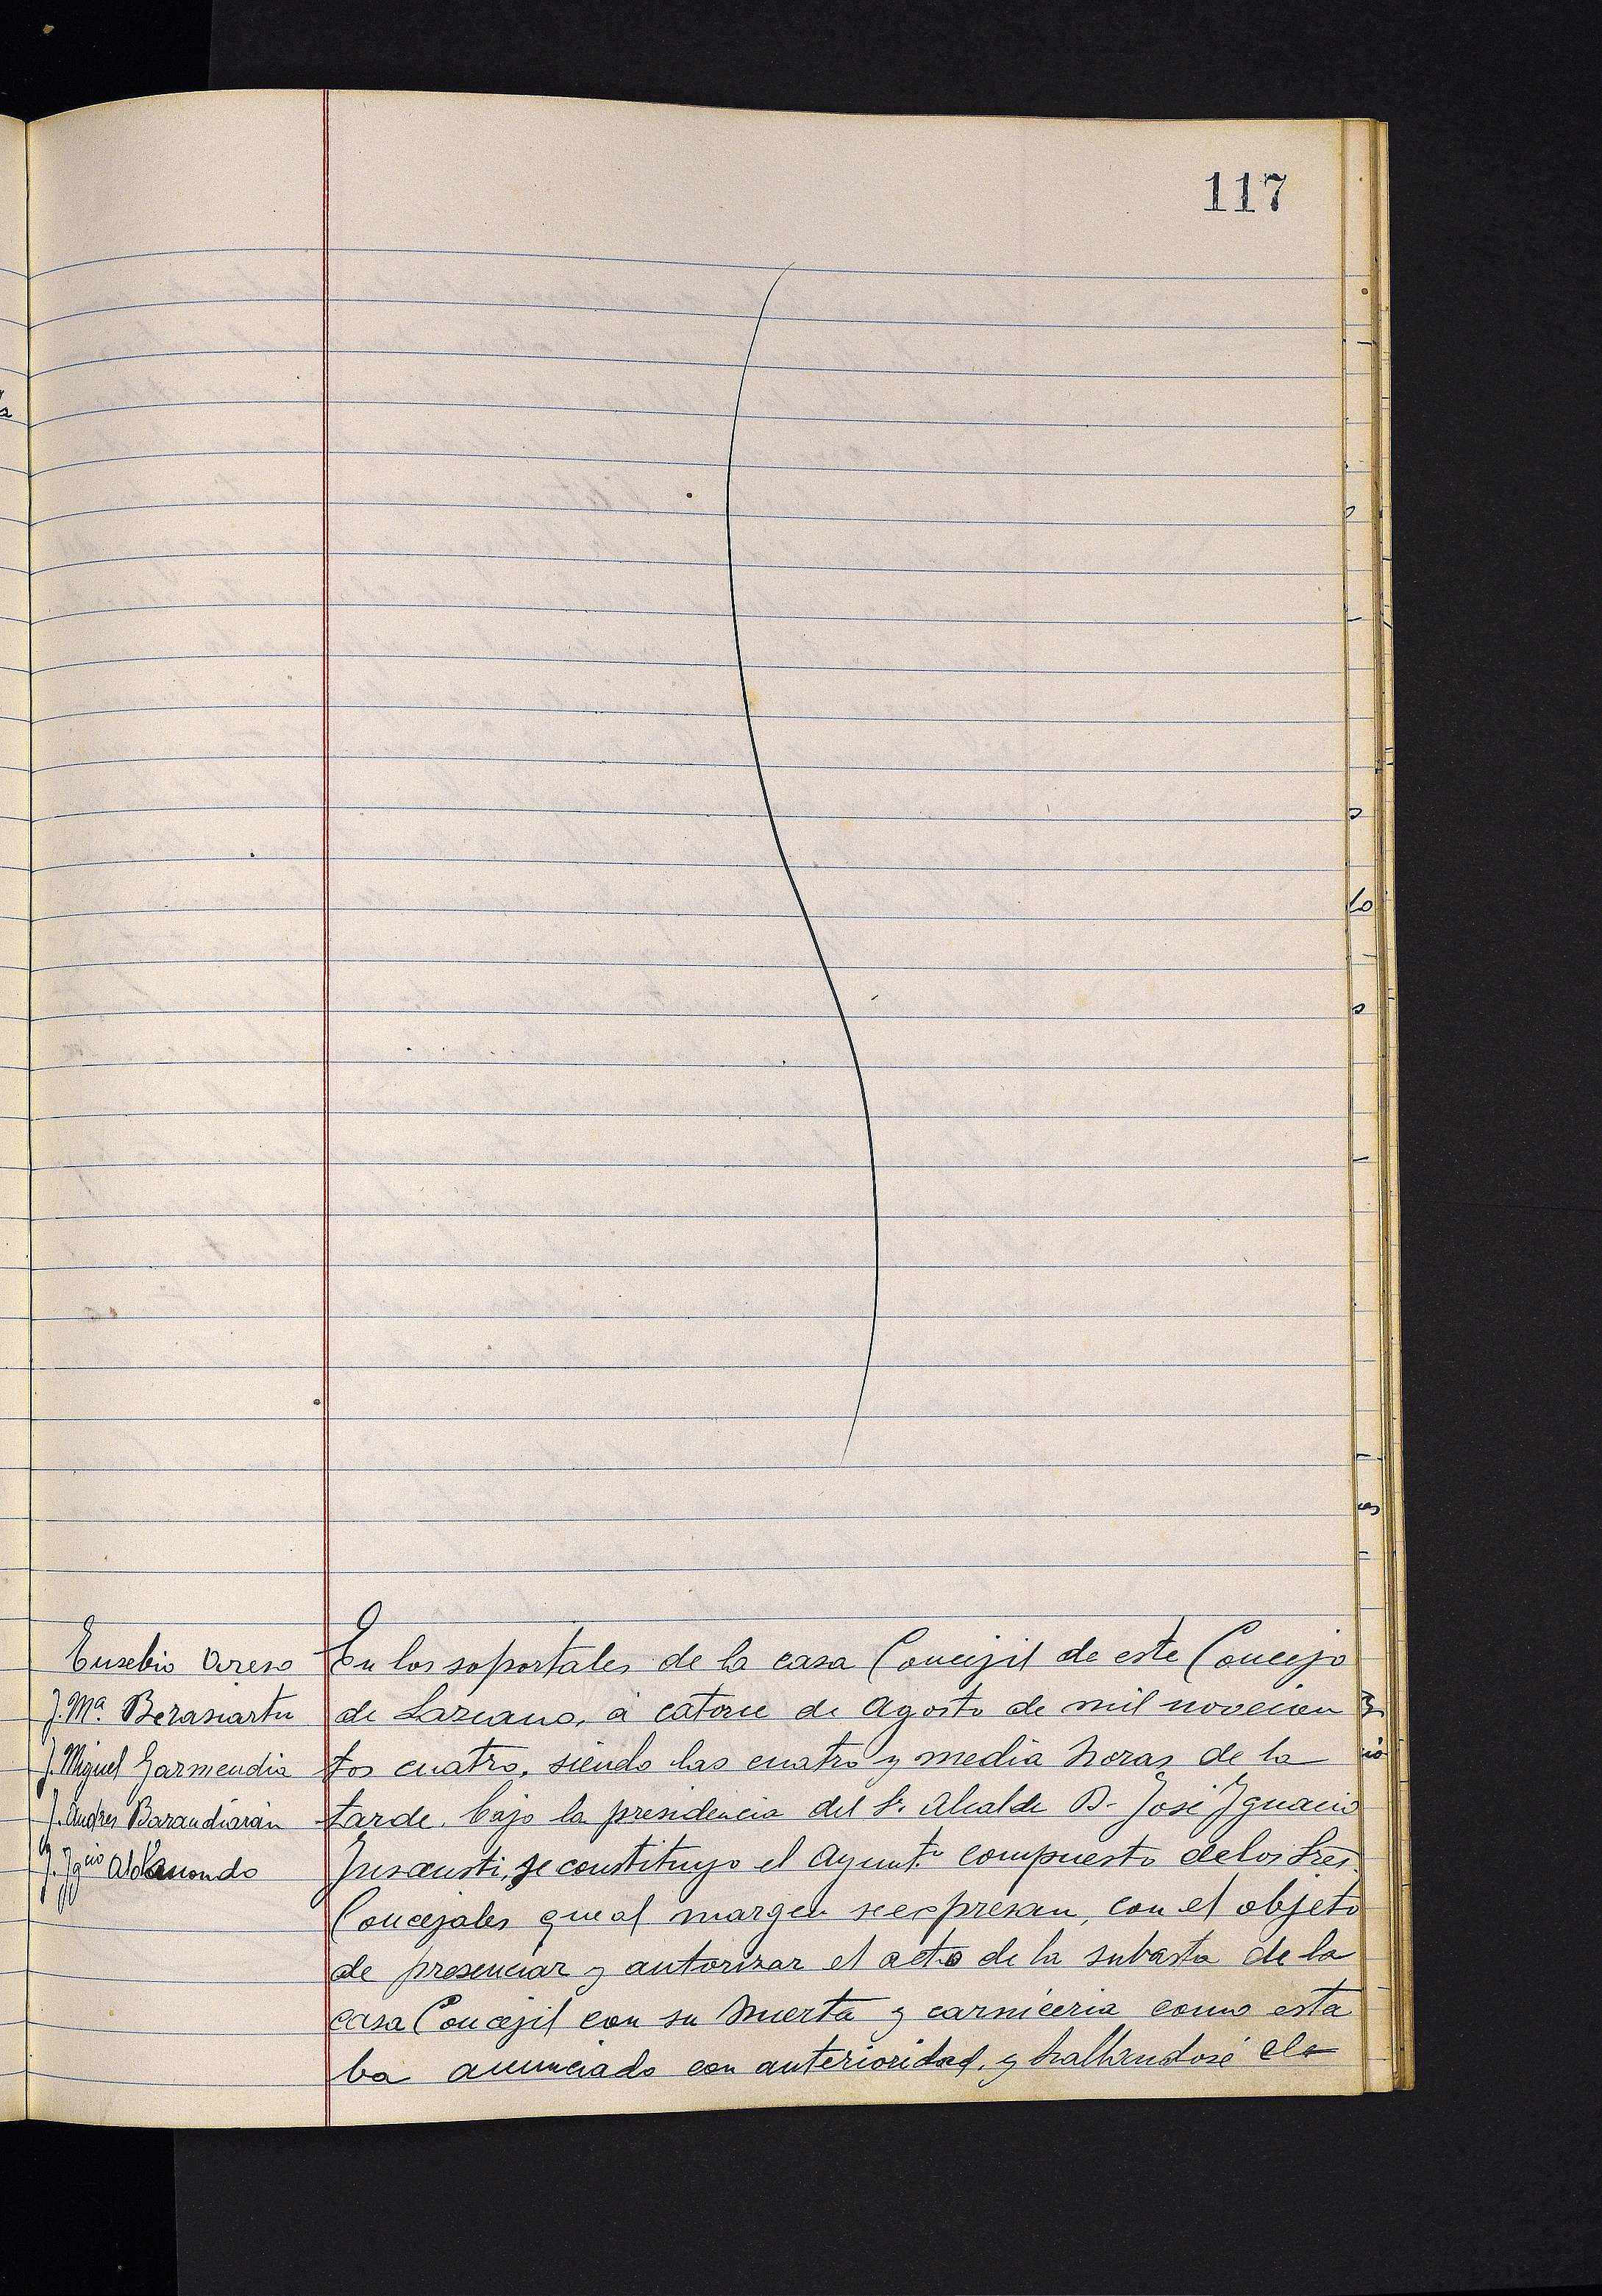 117
Eusebio Oreso
J. Mª. Berasiartu
J. Miguel Garmendia
J. Andres Barandiarán
J. Ygcio Aldanondo
En los soportales de la casa Concejil de este Concejo
de Lazcano, á catorce de Agosto de mil novecien
tos cuatro, siendo las cuatro y media horas de la
tarde, bajo la presidencia del Sr. Alcalde D. José Ygnacio
Insausti, se constituyo el Ayunt.º compuesto de los Sres.
Concejales que al margen se expresan, con el objeto
de presenciar y autorizar el acto de la subasta de la
casa Concejil con su huerta y carniceria como esta
ba anunciado con anterioridad, y hallandosé ele